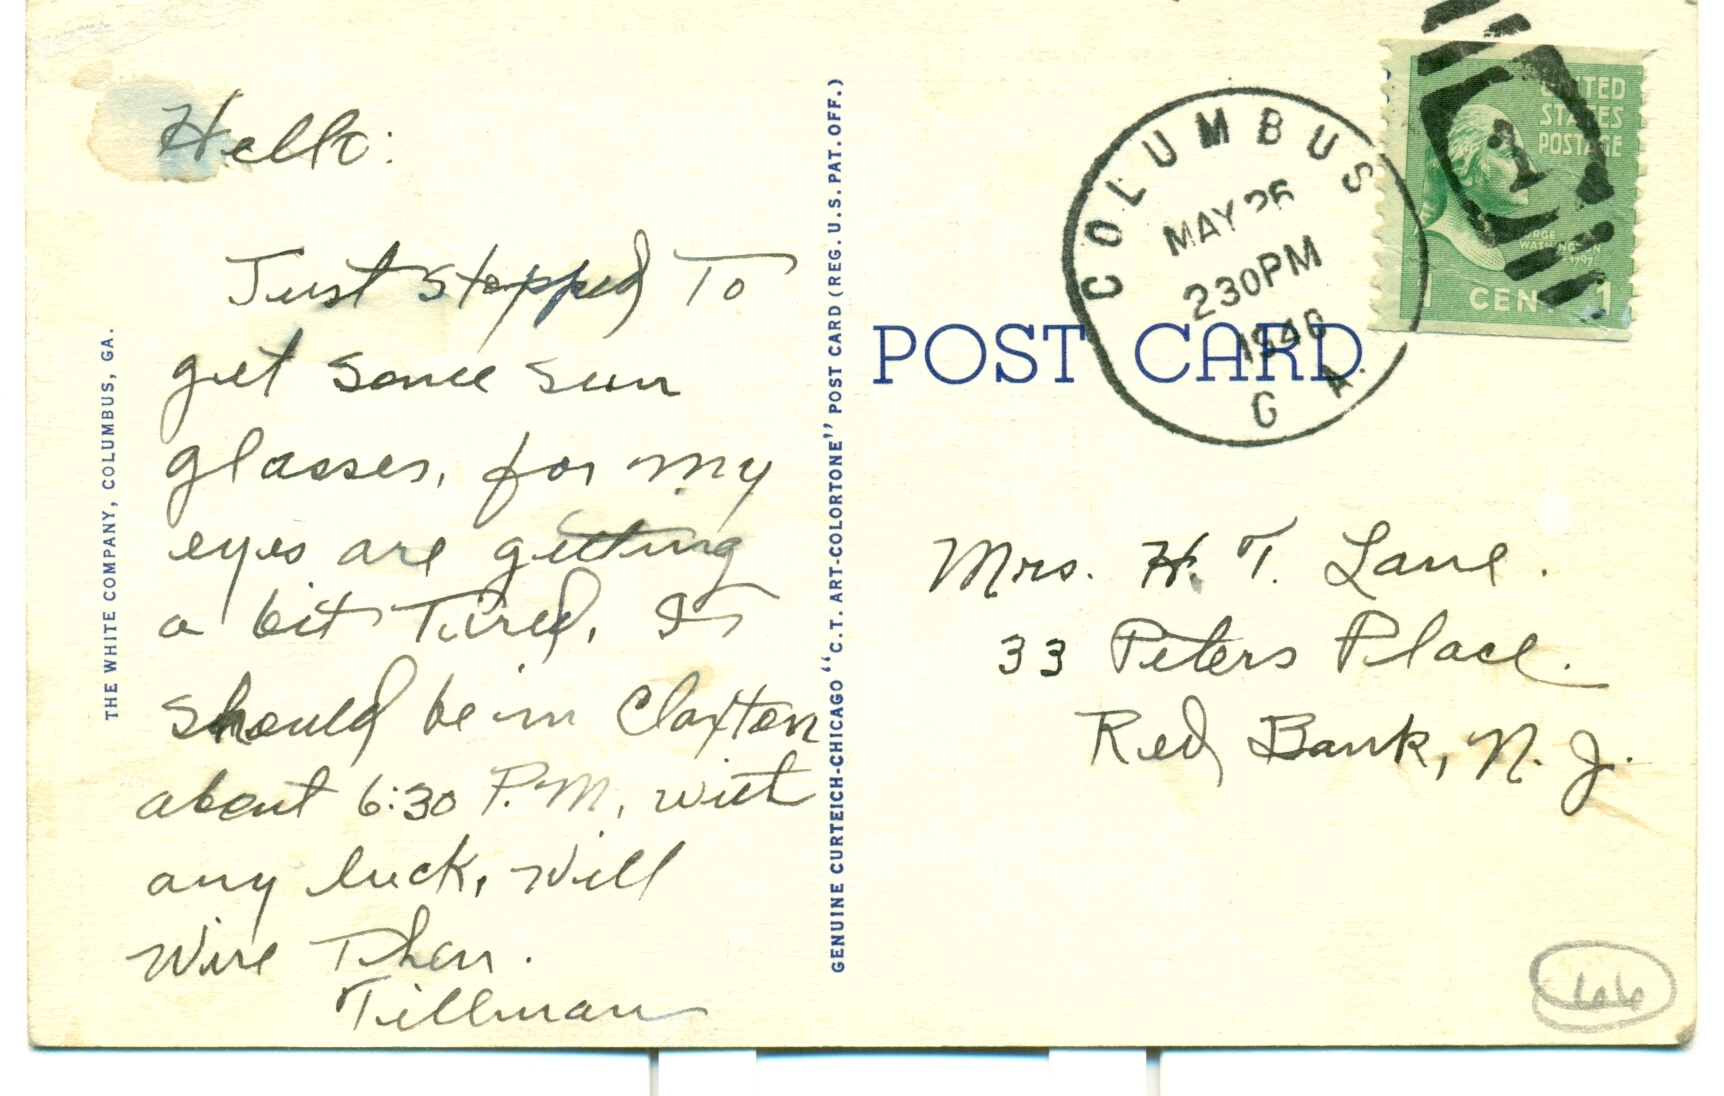 Hello:
Just stopped To
get some sun
glasses, for my
eyes are getting
a bit Tired. I
should be in Claxton
about 6:30 P.M, with
any luck, will
Wire Then.
Tillman
THE WHITE COMPANY, COLUMBUS, GA.
GENUINE CURTEICH-CHICAGO "C.T. ART-COLORTONE" POST CARD (REG. U.S. PAT. OFF.)
POST CARD
COLUMBUS
MAY 26
230PM
1946
GA.
UNITED
STATES
POSTAGE
WASHINGTON
1797
1 CENT 1
1
Mrs. H. T. Lane.
33 Peters Place.
Red Bank, N. J.
66